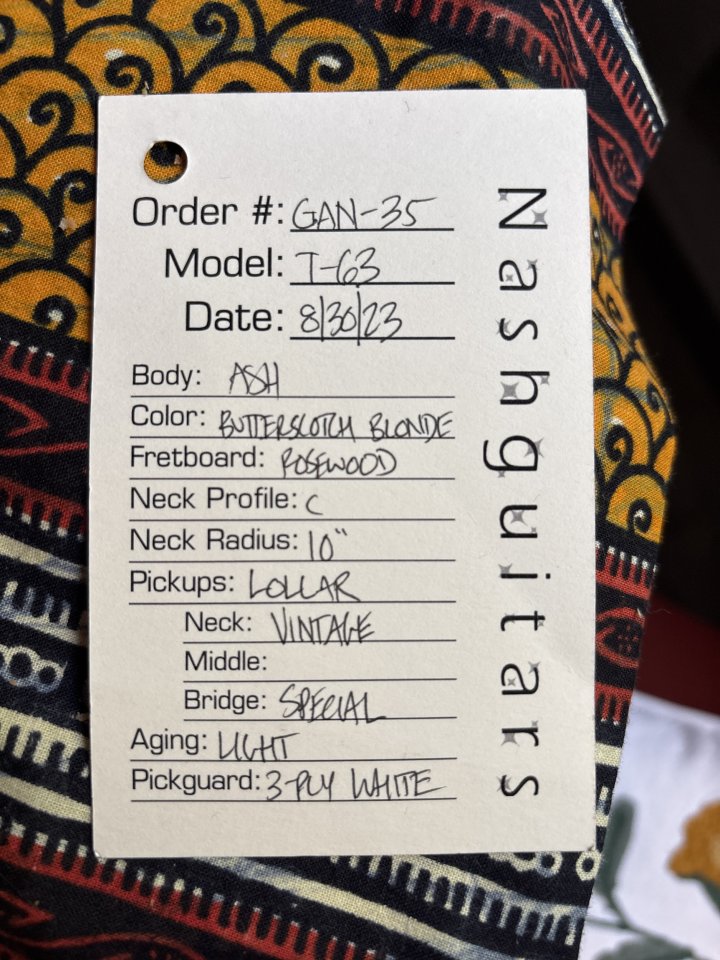 Order #: GAN-35
Model: T-63
Date: 8/30/23
Body: ASH
Color: BUTTERSCOTCH BLONDE
Fretboard: ROSEWOOD
Neck Profile: C
Neck Radius: 10"
Pickups: LOLLAR
Neck: VINTAGE
Middle:
Bridge: SPECIAL
Aging: LIGHT
Pickguard: 3-PLY WHITE
Nashguitars